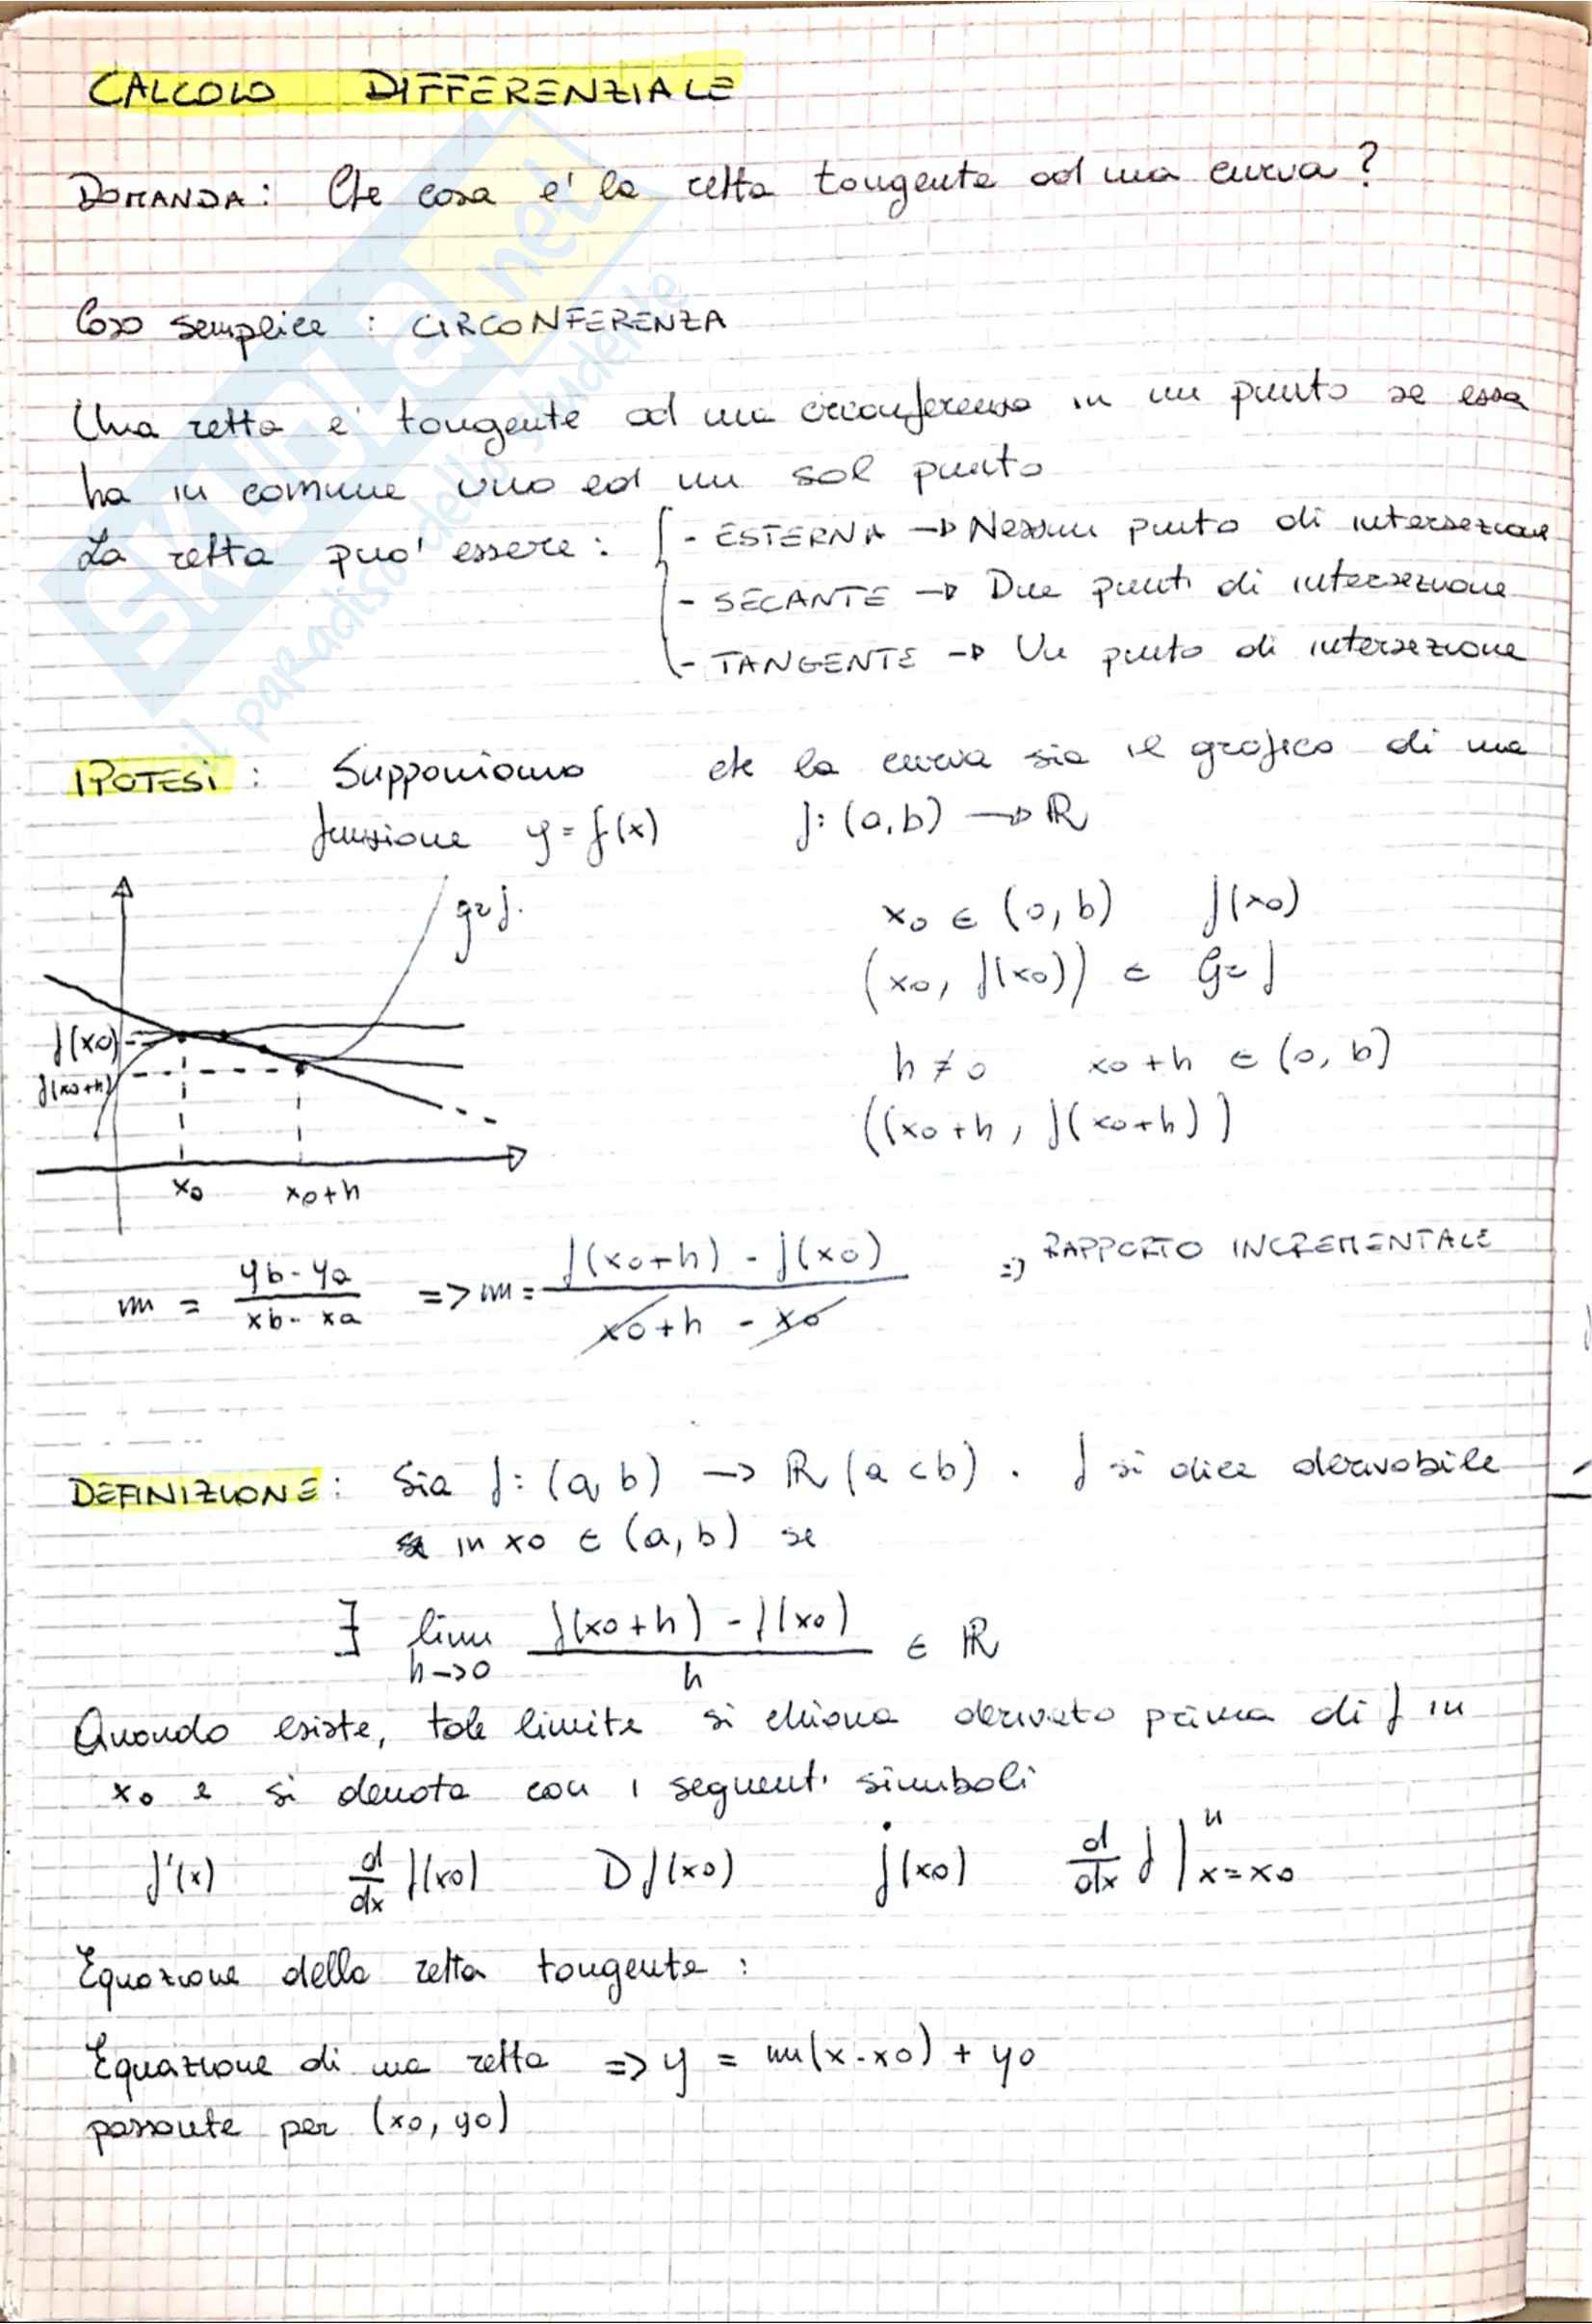 CALCOLO DIFFERENZIALE
DOMANDA: Che cosa e' la retta tangente ad una curva?
Caso semplice : CIRCONFERENZA
Una retta e' tangente ad una circonferenza in un punto se essa
ha in comune uno ed un sol punto
La retta puo' essere : { - ESTERNA → Nessun punto di intersezione
- SECANTE → Due punti di intersezione
- TANGENTE → Un punto di intersezione
IPOTESI : Supponiamo che la curva sia il grafico di una
funzione y = f(x) f: (a,b) → ℝ
gr f.
x0 ∈ (a, b) f(x0)
(x0, f(x0)) ∈ Gr f
f(x0)
f(x0+h)
h ≠ 0 x0 + h ∈ (a, b)
((x0 + h, f(x0+h))
x0 x0+h
m = (yb - ya)/(xb - xa) => m = (f(x0+h) - f(x0))/(x0+h - x0) => RAPPORTO INCREMENTALE
DEFINIZIONE : Sia f: (a, b) → ℝ (a < b) . f si dice derivabile
in x0 ∈ (a, b) se
∃ lim h→0 (f(x0 + h) - f(x0))/h ∈ ℝ
Quando esiste, tale limite si chiama derivata prima di f in
x0 e si denota con i seguenti simboli
f'(x) d/dx f(x0) D f(x0) ḟ(x0) d/dx f |ⁿ x=x0
Equazione della retta tangente :
Equazione di una retta => y = m(x-x0) + y0
passante per (x0, y0)
SKUOLA.net
il paradiso dello studente